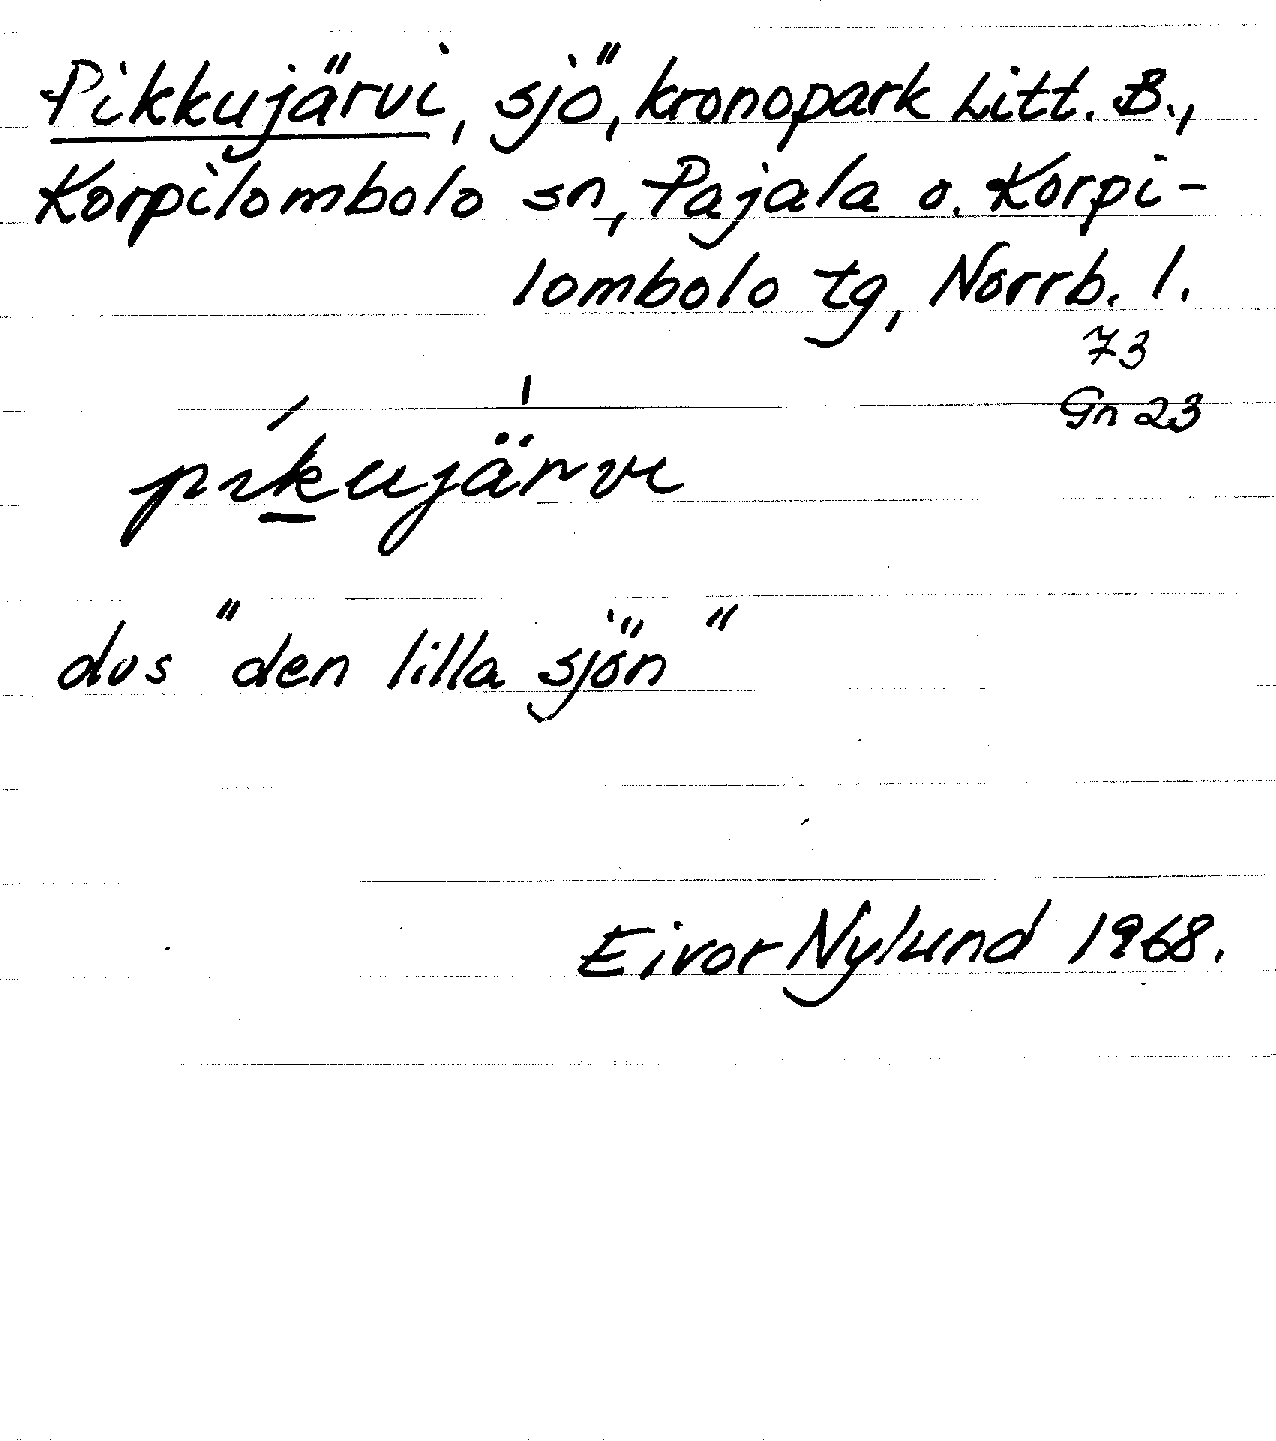 Pikkujärvi, sjö, kronopark Litt. B.,
Korpilombolo sn, Pajala o. Korpi-
lombolo tg, Norrb. l.
73
Gn 23
pikujärvi
dvs "den lilla sjön"
Eivor Nylund 1968.